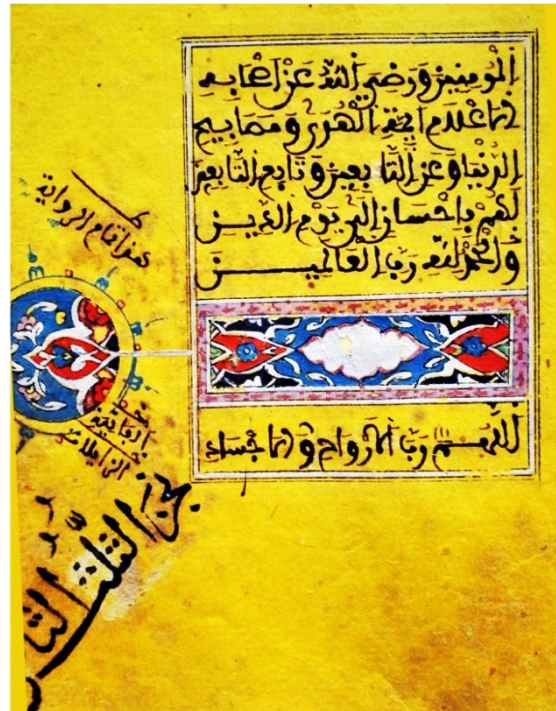 المومنين ورضي الله عن اصحابه
الاعلام ايمة الهدى ومصابيح
الدنيا وعن التابعين وتابع التابعين
لهم باحسان الى يوم الدين
والحمد لله رب العالمين
اللهم رب الارواح والاجساد
الرواية
الثلث